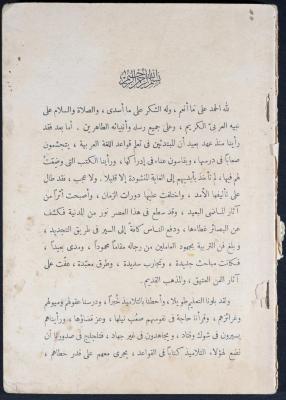 بسم الله الرحمن الرحيم
لله الحمد على ما أنعم ، وله الشكر على ما أسدى ، والصلاة والسلام على
نبيه العربيّ الكريم ، وعلى جميع رسله وأنبيائه الطاهرين . أما بعد فقد
رأينا منذ عهد بعيد أن المبتدئين فى تعلم قواعد اللغة العربية ، يتجشمون
صعابًا فى درسها ، ويقاسون عناء فى إدراكها ، ورأينا الكتب التى وضعت
لهم فيها ، لم تأخذ بأيديهم إلى الغاية المنشودة إلا قليلا . ولا عجب ، فقد طال
على تأليفها الأمد ، واختلفت عليها دورات الزمان ، وأصبحت أثرًا من
آثار الناس البعيد ، وقد سطع فى هذا العصر نور من المدنية فكشف
عن البصائر غطاءها ، ودفع الناس كافة إلى السير فى طريق التجديد ،
و بلغ فن التربية بمجهود العاملين من رجاله مقامًا محمودًا ، ومدى بعيدًا ،
فكانت مباحث جديدة ، وتجارب سديدة ، وطرق معبّدة ، عفّت على
آثار الفن العتيق ، والمذهب القديم .
ولقد بلونا التعليم طويلا ، وأحطنا بالتلاميذ خُبرًا ، ودرسنا عقولهم وميولهم
وغرائزهم ، وقرأنا حاجة فى نفوسهم صعُب نيلها ، وعز قضاؤها ، ورأيناهم
يسيرون فى شوك وقتاد ، ويجاهدون فى غير جهاد ، فتلجلج فى صدورنا أن
نضع لهؤلاء التلاميذ كتابًا فى القواعد ، يجرى معهم على قدر خطاهم ،